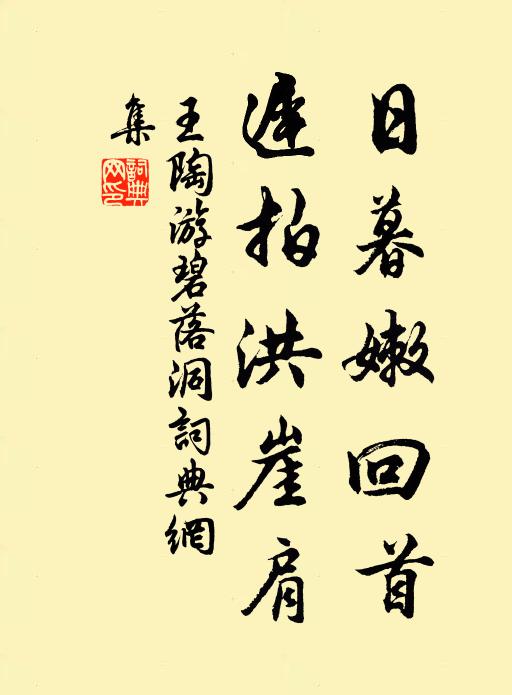 日暮嫩回首
遲拍洪崖肩
王陶游碧落洞詞典網
集
詞典网印